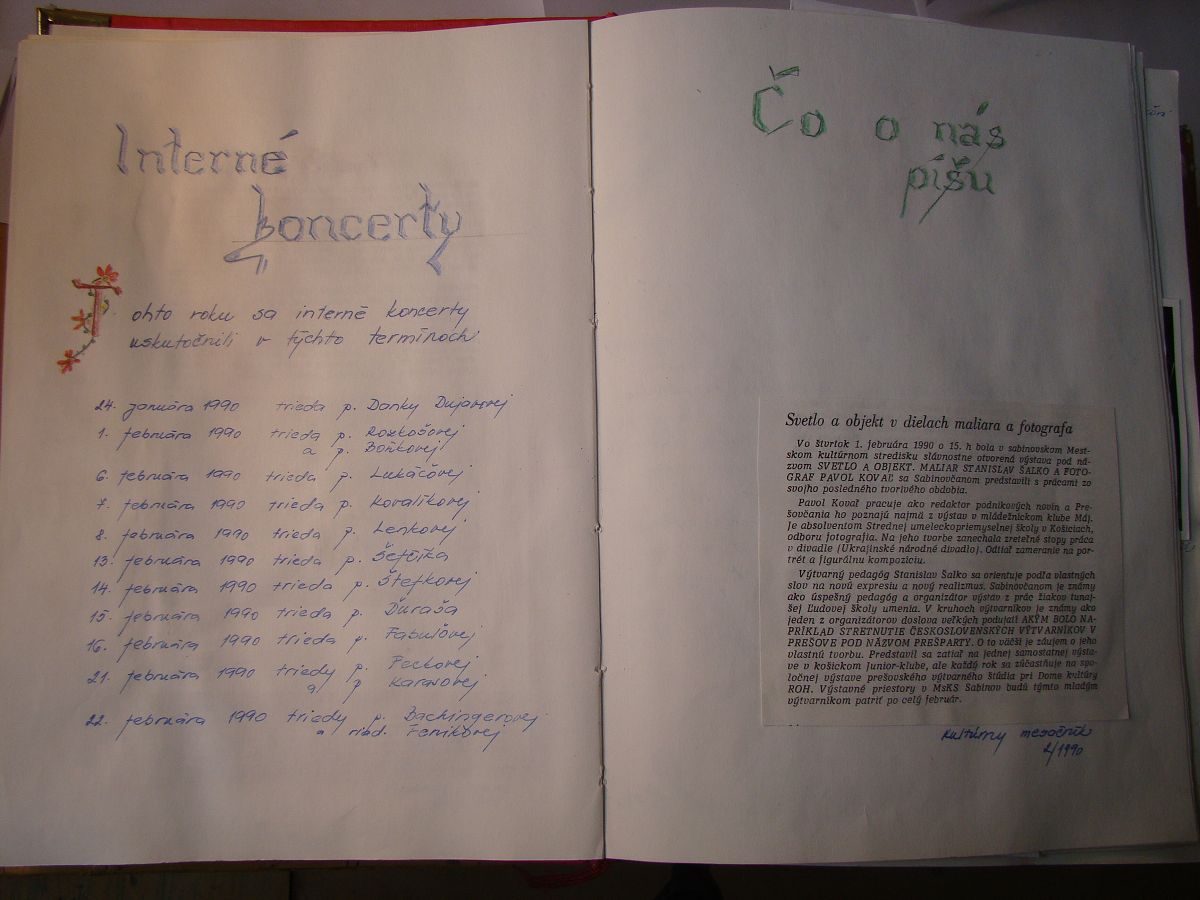 Interné
koncerty
Tohto roku sa interné koncerty
uskutočnili v týchto termínoch
24. januára 1990 trieda p. Danky Dujavovej
1. februára 1990 trieda p. Rozkošovej
a p. Boňkovej
6. februára 1990 trieda p. Lukáčovej
7. februára 1990 trieda p. Kovalíkovej
8. februára 1990 trieda p. Lenkovej
13. februára 1990 trieda p. Šefčíka
14. februára 1990 trieda p. Štefkovej
15. februára 1990 trieda p. Ďuraša
16. februára 1990 trieda p. Fabuľovej
21. februára 1990 triedy p. Peckovej
a p Karasovej
22. februára 1990 triedy p. Bachingerovej
a riad. Feníkovej
Čo o nás
píšu
Svetlo a objekt v dielach maliara a fotografa
Vo štvrtok 1. februára 1990 o 15. h bola v sabinovskom Mest-
skom kultúrnom stredisku slávnostne otvorená výstava pod ná-
zvom SVETLO A OBJEKT. MALIAR STANISLAV ŠALKO A FOTO-
GRAF PAVOL KOVAĽ sa Sabinovčanom predstavili s prácami zo
svojho posledného tvorivého obdobia.
Pavol Kovaľ pracuje ako redaktor podnikových novín a Pre-
šovčania ho poznajú najmä z výstav v mládežníckom klube Máj.
Je absolventom Strednej umeleckopriemyselnej školy v Košiciach,
odboru fotografia. Na jeho tvorbe zanechala zreteľné stopy práca
v divadle (Ukrajinské národné divadlo). Odtiaľ zameranie na por-
trét a figurálnu kompozíciu.
Výtvarný pedagóg Stanislav Šalko sa orientuje podľa vlastných
slov na novú expresiu a nový realizmus. Sabinovčanom je známy
ako úspešný pedagóg a organizátor výstav z prác žiakov tunaj-
šej Ľudovej školy umenia. V kruhoch výtvarníkov je známy ako
jeden z organizátorov doslova veľkých podujatí AKÝM BOLO NA-
PRÍKLAD STRETNUTIE ČESKOSLOVENSKÝCH VÝTVARNÍKOV V
PREŠOVE POD NÁZVOM PREŠPARTY. O to väčší je záujem o jeho
vlastnú tvorbu. Predstavil sa zatiaľ na jednej samostatnej výsta-
ve v košickom junior-klube, ale každý rok sa zúčastňuje na spo-
ločnej výstave prešovského výtvarného štúdia pri Dome kultúry
ROH. Výstavné priestory v MsKS Sabinov budú týmto mladým
výtvarníkom patriť po celý február.
Kultúrny mesačník
2/1990